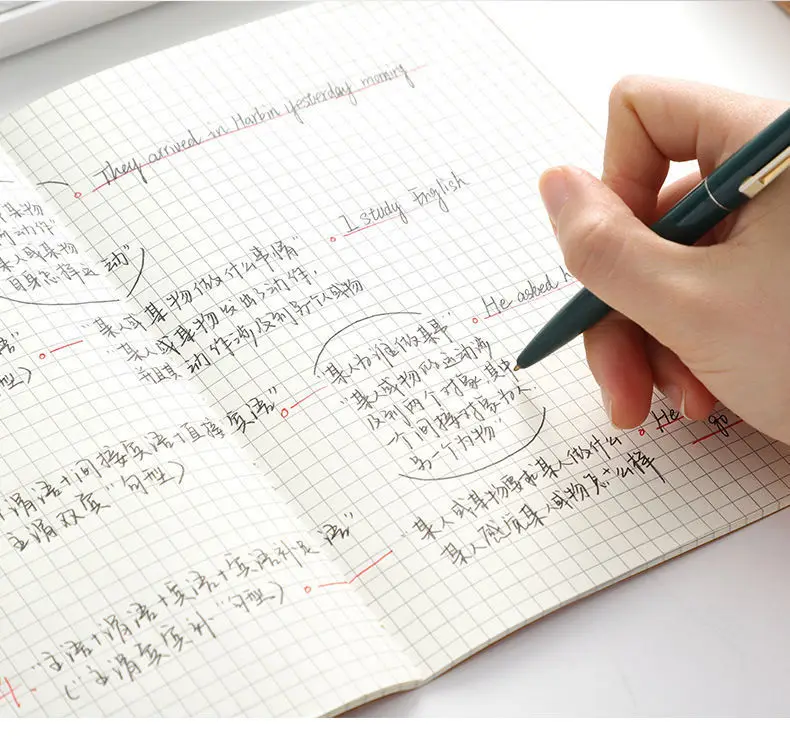 They arrived in Harbin yesterday morning
I study English
He asked h
某人或某物做什么事情"
"某人或某物发出动作,
并且其动作涉及到另个人或物
某人为谁做某事
"某人或物的运动涉
及到两个对象,其中
一个间接对象为人,
另一个为物"
He
go
某人或某物要求某人做什么
某人感觉某人或物怎么样
某物
动作"
某人或某物
自身怎样运动"
句型)
谓语+间接宾语+直接宾语"
主谓双宾"句型)
"主语+谓语+宾语+宾语补足语"
("主谓宾宾补"句型)